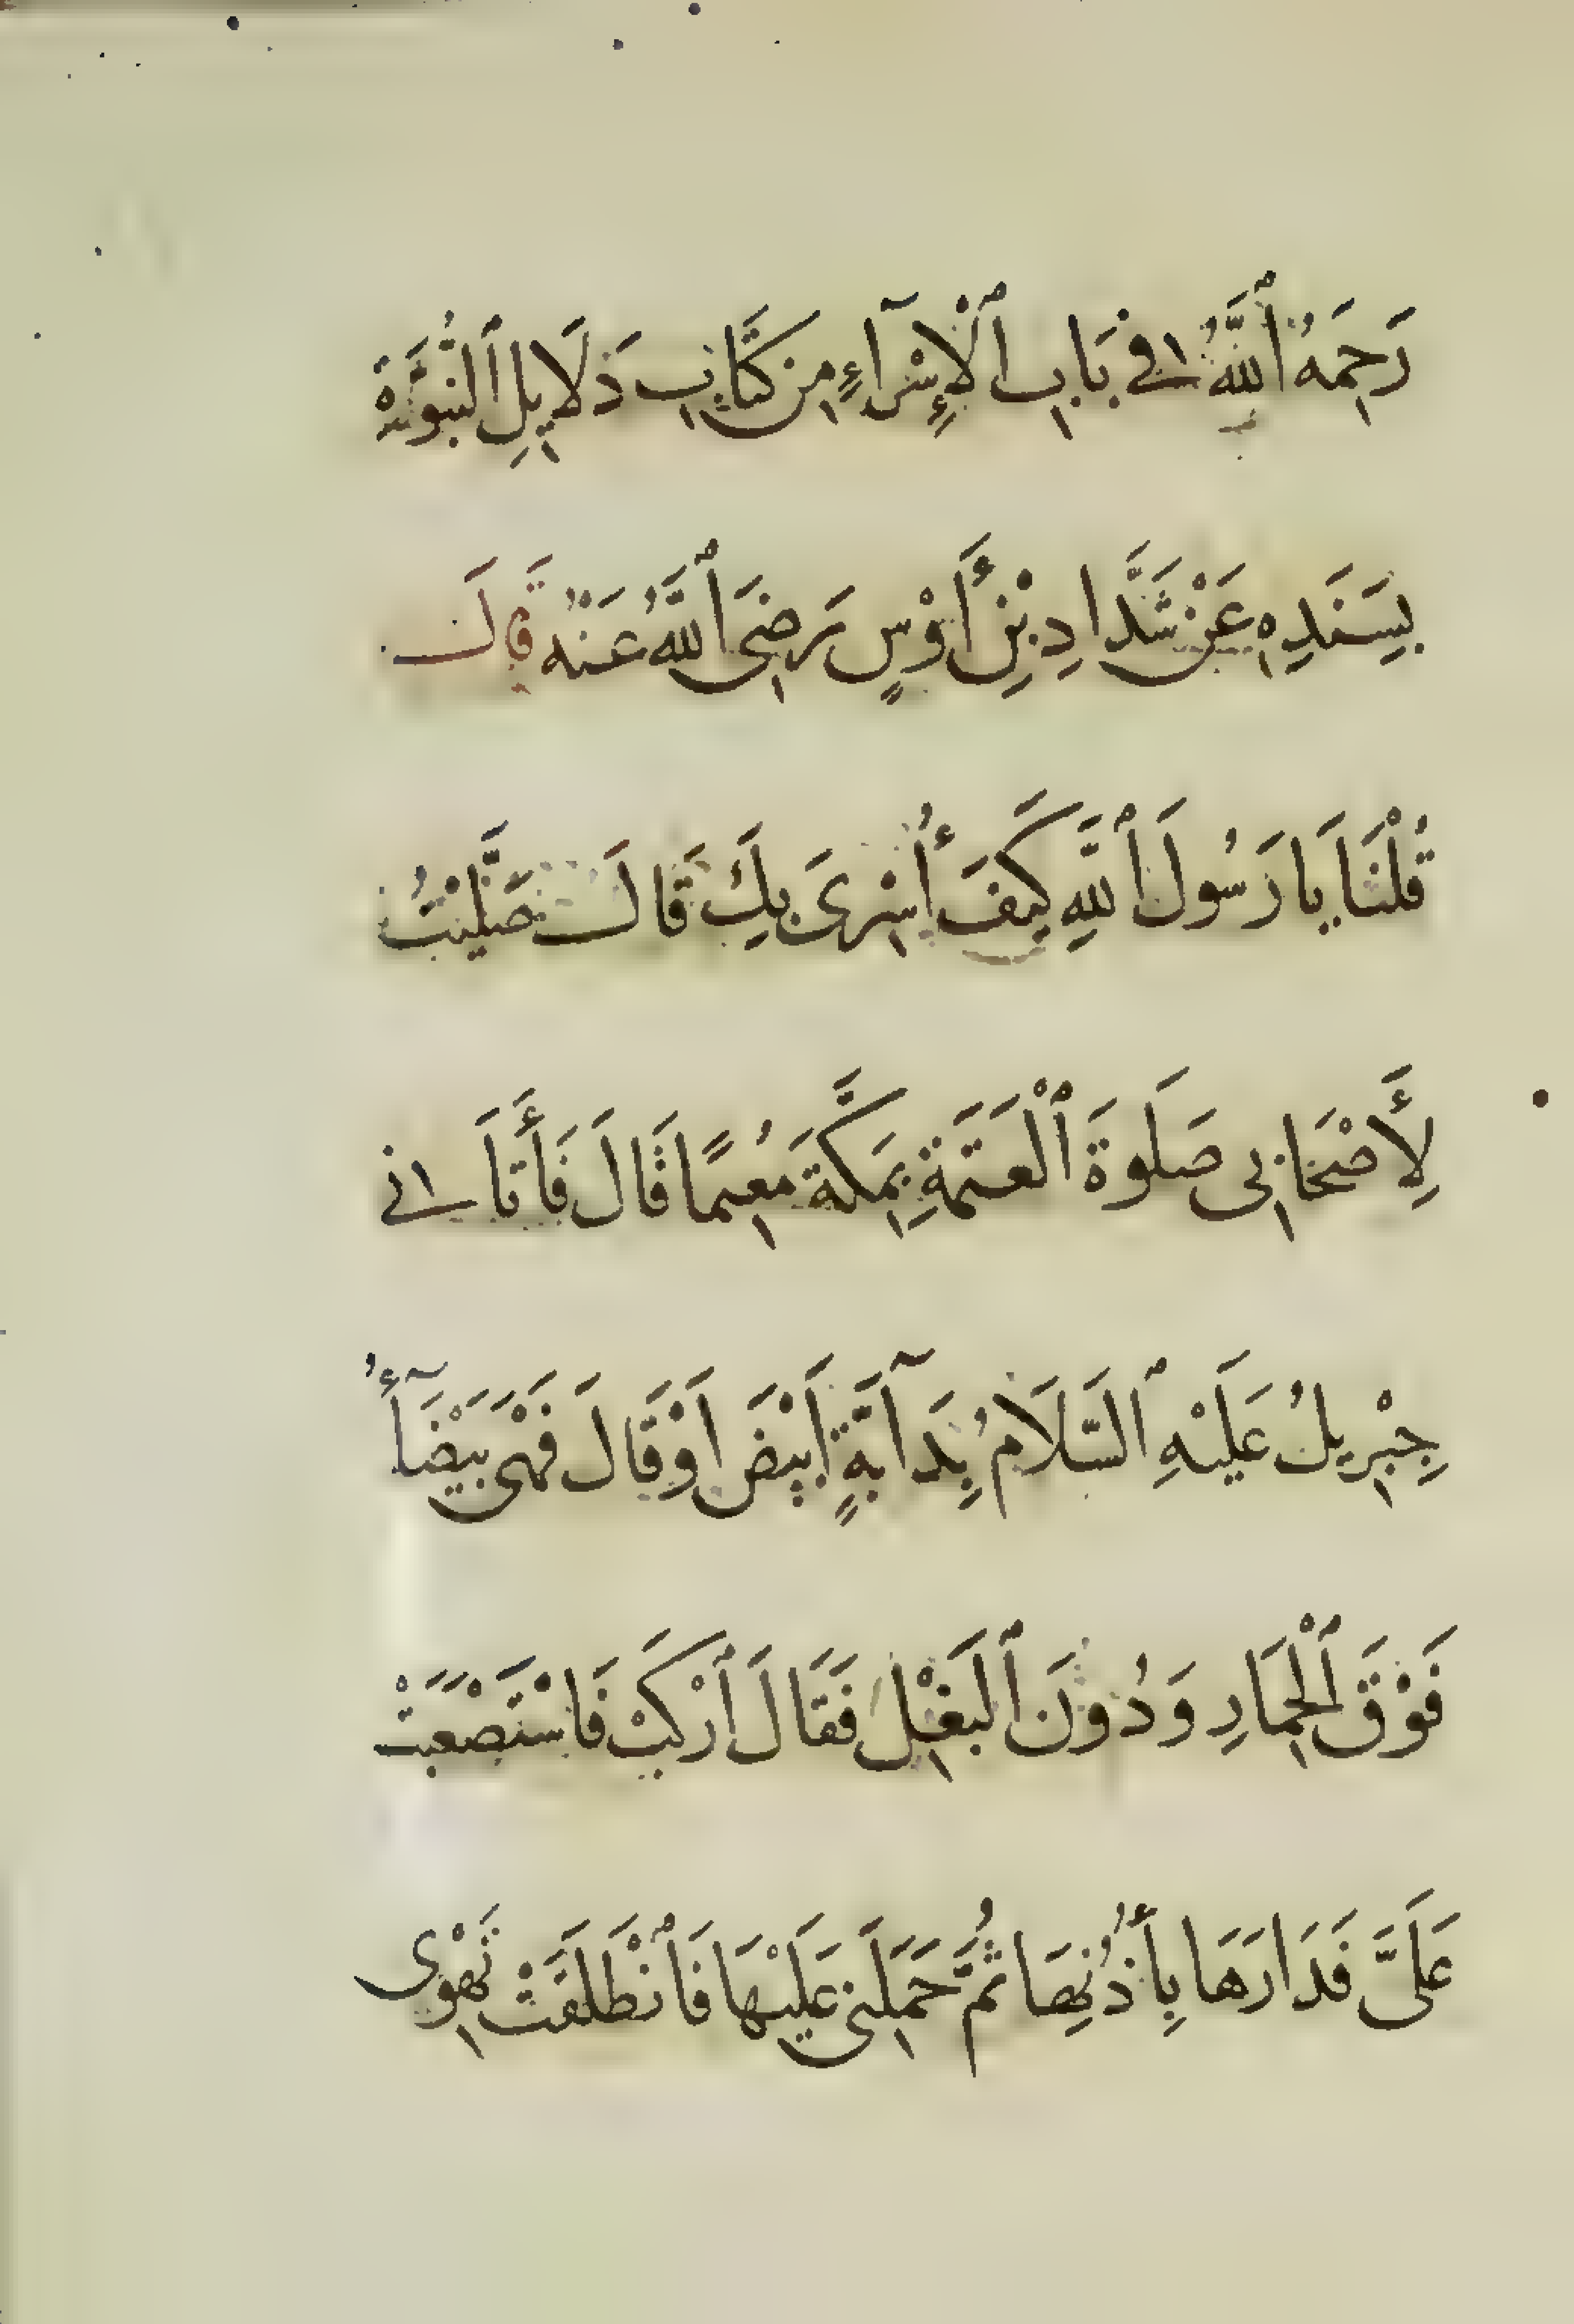 رَحِمَهُ ٱللَّهُ فِي بَابِ ٱلْإِسْرَآءِ مِن كِتَابِ دَلَايِلِ ٱلنُّبُوَّةِ
بِسَنَدِهِ عَنْ شَدَّادِ بْنِ أَوْسٍ رَضِيَ ٱللَّهُ عَنْهُ قَالَ
قُلْنَا يَا رَسُولَ ٱللَّهِ كَيْفَ أُسْرِىَ بِكَ قَالَ صَلَّيْتُ
لِأَصْحَابِى صَلَوةَ ٱلْعَتَمَةِ بِمَكَّةَ مُعِمًا قَالَ فَأَتَانِي
جِبْرِيلُ عَلَيْهِ ٱلسَّلَامُ بِدَآبَّةٍ أَبْيَضَ اَوْ قَالَ فَهْىَ بَيْضَآءُ
فَوْقَ ٱلْحِمَارِ وَدُونَ ٱلْبَغْلِ فَقَالَ ٱرْكَبْ فَاسْتَصْعَبَتْ
عَلَىَّ فَدَارَهَا بِأُذُنِهَا ثُمَّ حَمَلَنِى عَلَيْهَا فَٱنْطَلَقَتْ تَهْوِى